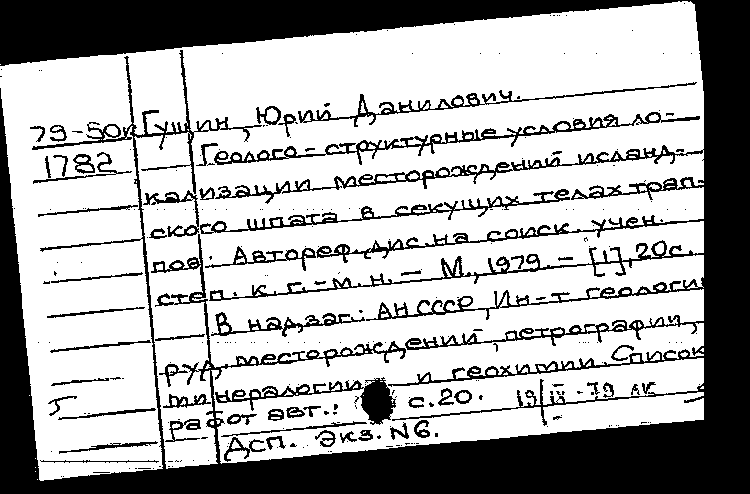 79-50к Гущин, Юрий Данилович.
1782 Геолого-структурные условия ло-
кализации месторождений исланд-
ского шпата в секущих телах трап-
пов: Автореф. дис. на соиск. учен.
степ. к. г.-м. н. - М., 1979. - [1], 20с.
В над заг.: АН СССР, Ин-т геологии
руд. месторождений, петрографии,
минералогии и геохимии. Список
работ авт.: с.20. 19/IX-79
Дсп. Экз. N6.